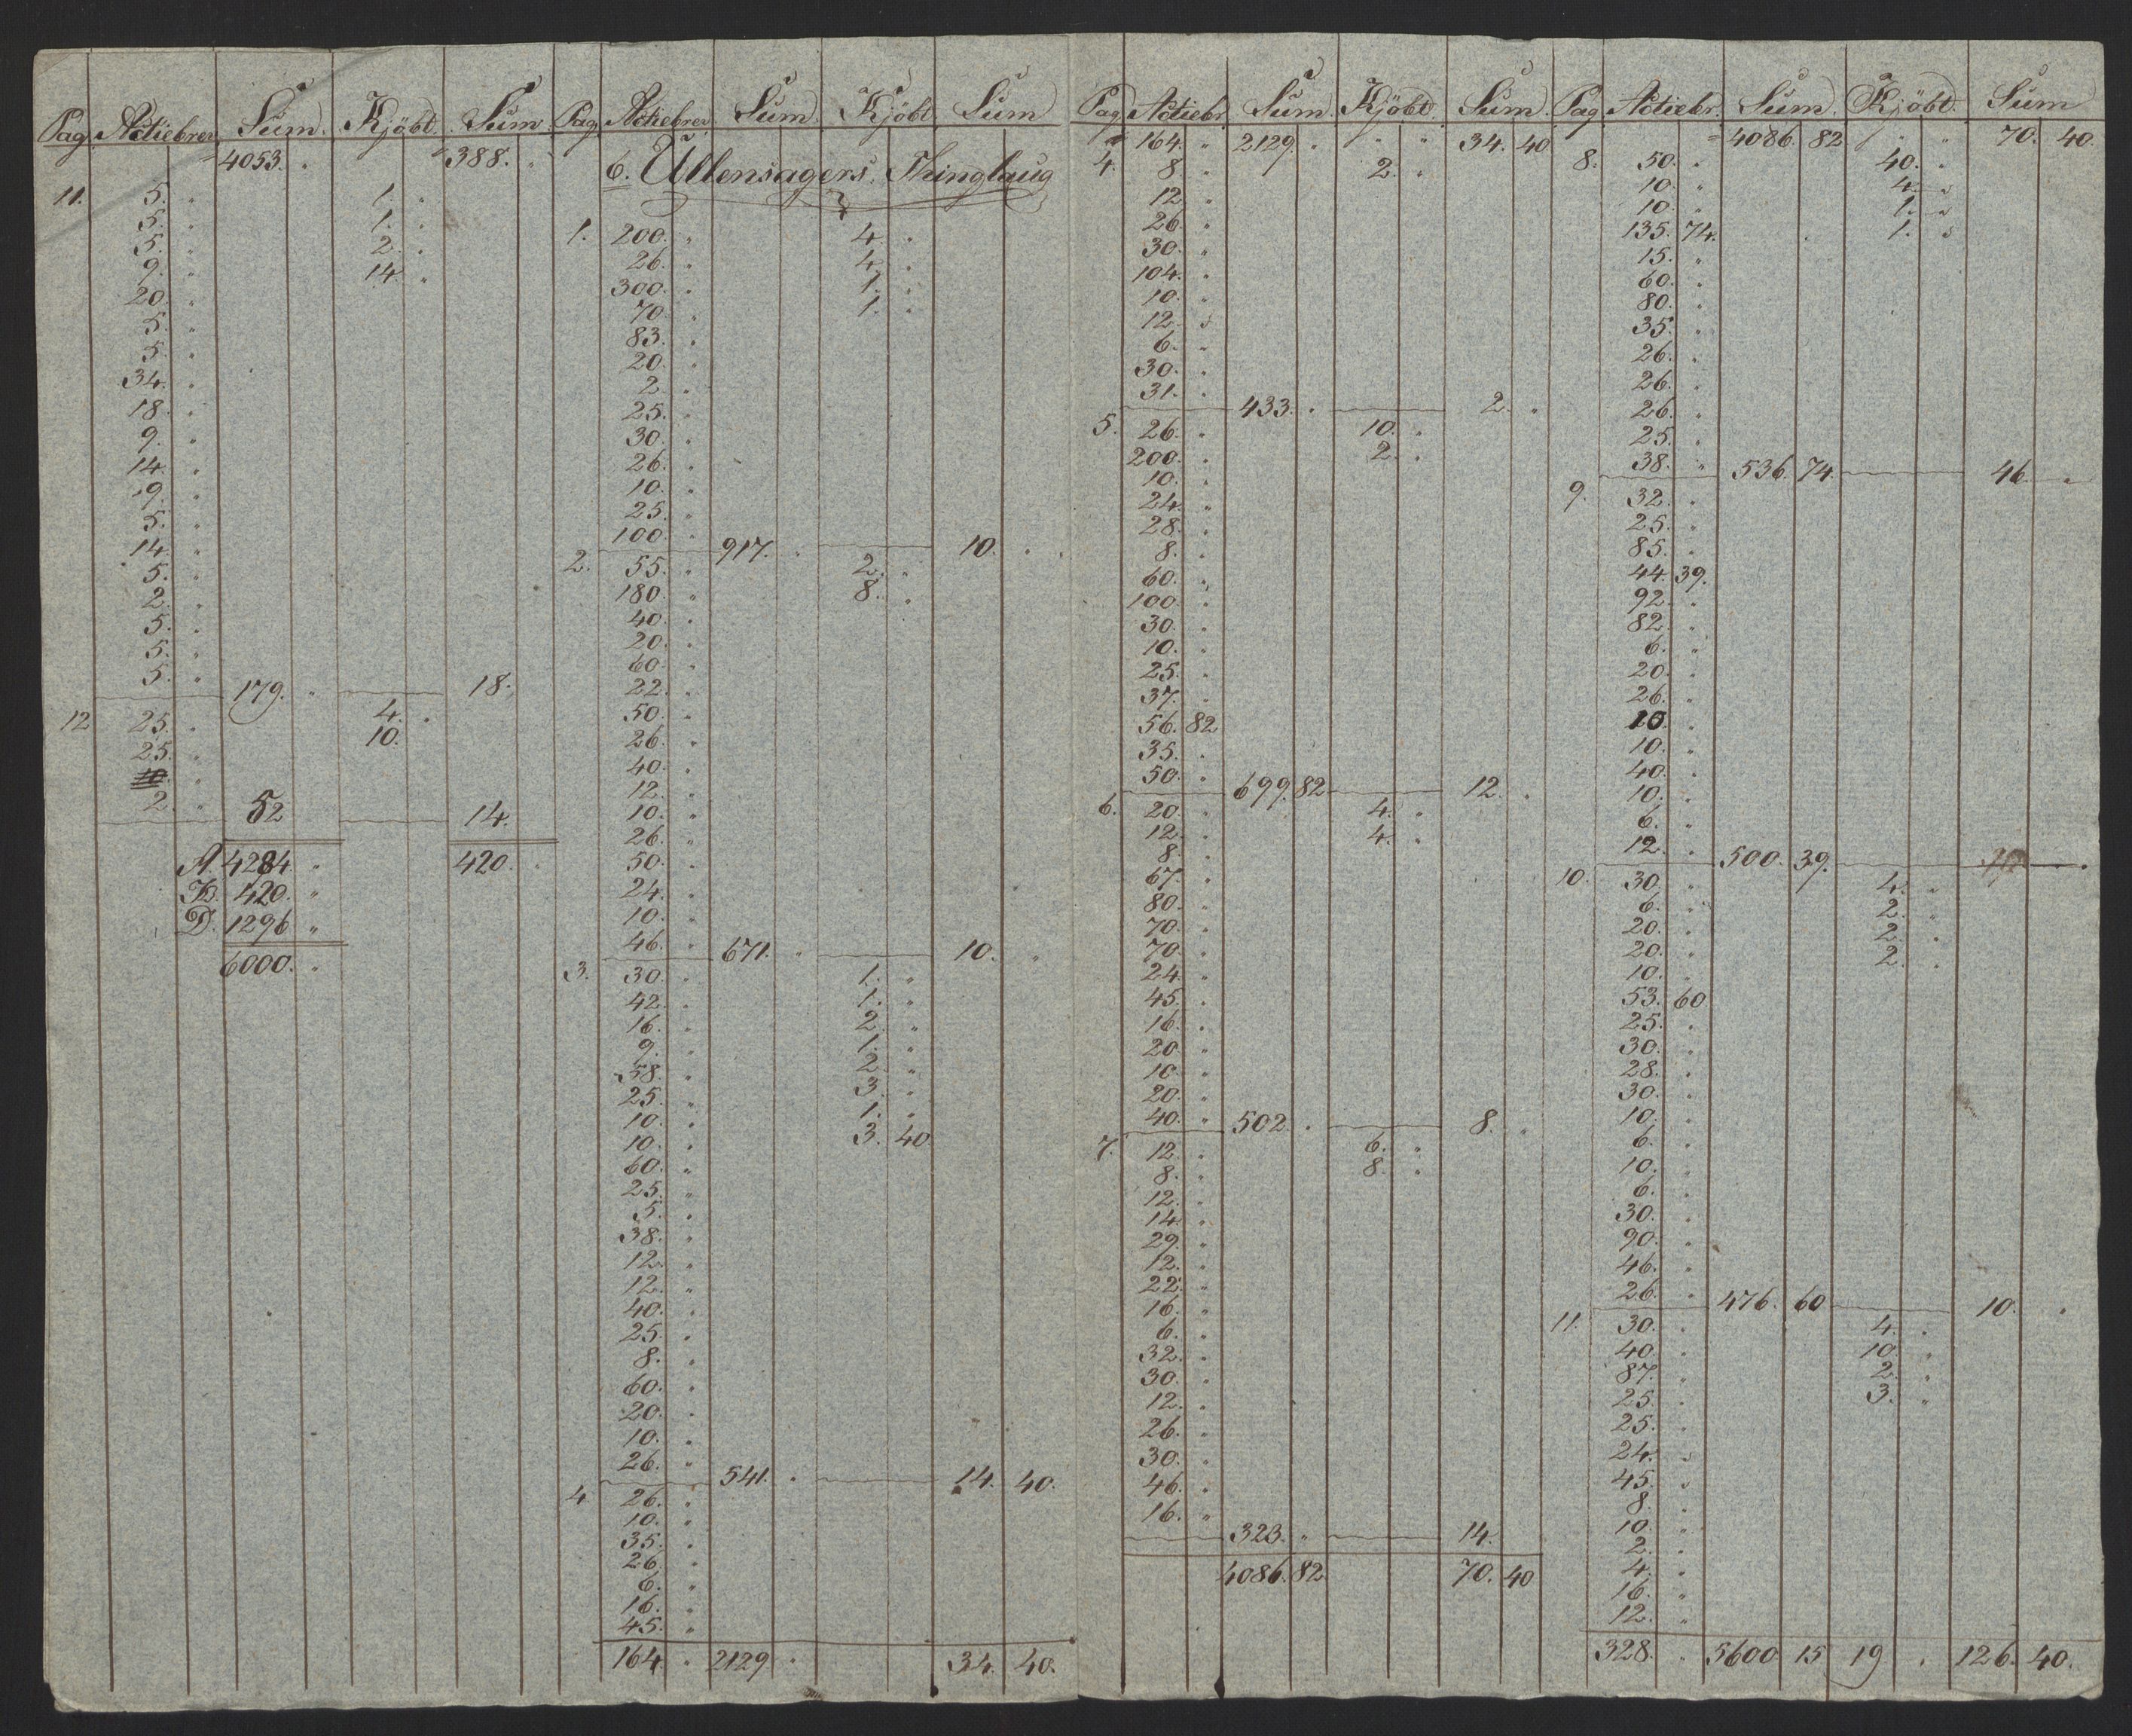 Pag. Actiebrev. Sum. Kjöbt. Sum
4053. 388.
11. 5. 1.
5. 1.
5. 2.
9. 14.
20.
5.
5.
34.
18.
9.
14.
9.
5.
14.
5.
2.
5.
5.
5. 179. 18.
12 25. 4.
25. 10.
2. 52 14.
A. 4284. 420.
B. 420.
D. 1296
6000.
Pag. Actiebrev. Sum. Kjöbt. Sum
6. Ullensagers Thinglaug
1. 200. 4.
26. 4.
300. 1.
70. 1.
83.
20.
2.
25.
30.
26.
10.
25.
100. 917. 10.
2. 55. 2.
180 8.
40.
20.
60.
22.
50.
26.
40.
12.
10.
26.
50.
24.
10.
46. 671. 10.
3. 30. 1.
42. 1.
16. 2.
9. 1.
58. 2.
25. 3.
10. 1.
10. 3. 40
60.
25.
5.
38.
12.
12.
40.
25.
8.
60.
20.
10.
26. 541. 14. 40.
4 26.
10.
35.
26.
6.
16.
45.
164. 2129 34. 40.
Pag. Actiebr. Sum. Kjöbt. Sum.
164. 2129. 34. 40
4. 8. 2.
12.
26.
30.
104.
10.
12.
6.
30.
31. 433. 2.
5. 26. 10.
200. 2.
10.
24.
28.
8.
60.
100.
30.
10.
25.
37.
56. 82
35.
50. 699. 82 12.
6. 20. 4.
12. 4.
8.
67.
80.
70.
70.
24.
45.
16.
20.
10.
20.
40. 502. 8.
7. 12. 6.
8. 8.
12.
14.
29.
12.
22.
16.
6.
32.
30.
12.
26.
30.
46.
16.
323. 14.
4086. 82 70. 40
Pag Actiebr. Sum. Kjöbt. Sum
4086. 82 70. 40.
8. 50. 40.
10. 4.
10. 1.
135. 74. 1.
15.
60.
80.
35.
26.
26.
26.
25.
38. 536. 74. 46.
9. 32.
25.
85.
44. 39.
92.
82.
6.
20.
26.
10.
10.
40.
10.
6.
12. 500. 39.
10. 30. 4.
6. 2.
20. 2.
20. 2.
10.
53. 60
25.
30.
28.
30.
10.
6.
10.
6.
30.
90.
46.
26. 476. 60 10.
11. 30. 4.
40. 10.
87. 2.
25. 3.
25.
24.
45.
8.
10.
2.
4.
16.
12.
328. 5600 15 19 126. 40.